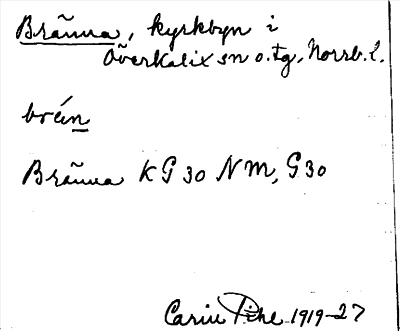 Bränna, kyrkbyn i
Överkalix sn o. tg, Norrb. l.
bräin
Bränna KG 30 NM, G 30
Carin Pihl 1919-27